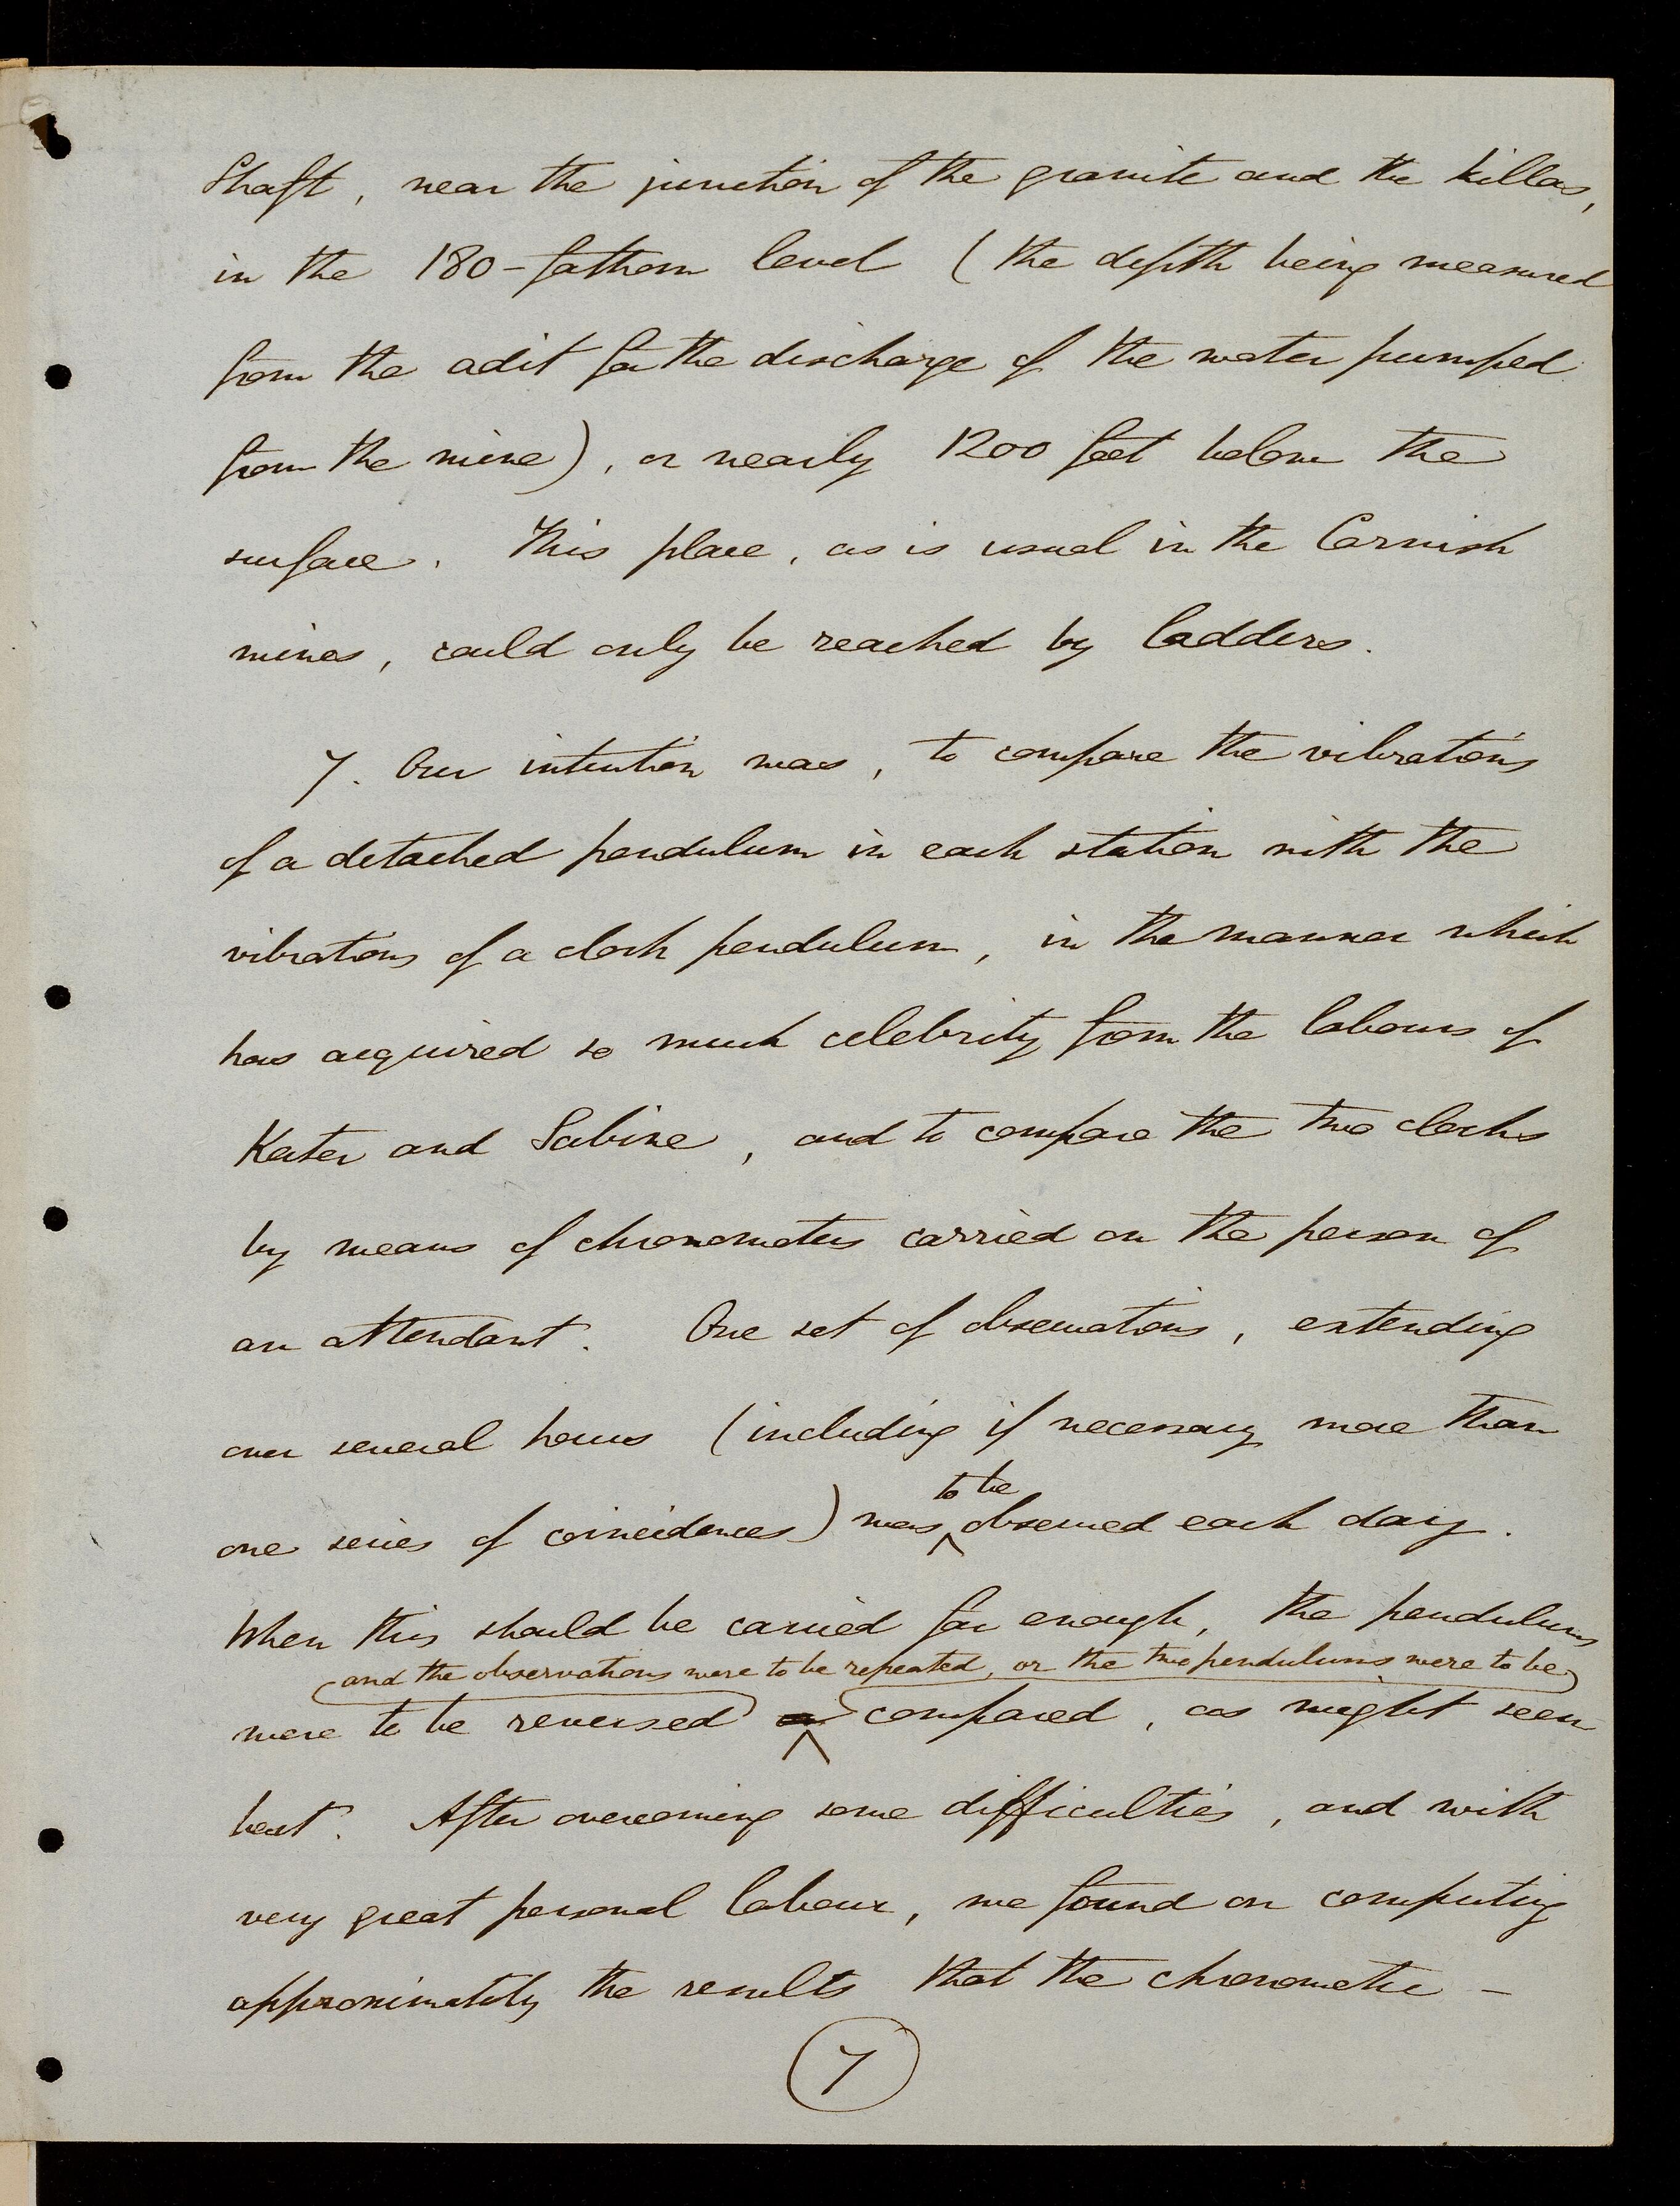 Shaft, near the junction of the granite and the killas,
in the 180-fathom level (the depth being measured
from the adit for the discharge of the water pumped
from the mine), or nearly 1200 feet below the
surface. This place, as is usual in the Cornish
mines, could only be reached by ladders.
7. Our intention was, to compare the vibrations
of a detached pendulum in each station with the
vibrations of a clock pendulum, in the manner which
has acquired so much celebrity from the labours of
Kater and Sabine, and to compare the two clocks
by means of chronometers carried on the person of
an attendant. One set of observations, extending
over several hours (including if necessary more than
to be
one series of coincidences) was observed each day.
When this should be carried far enough, the pendulums
and the observations were to be repeated, or the two pendulums were to be
were to be reversed or compared, as might seem
best. After overcoming some difficulties, and with
very great personal labour, we found on computing
approximately the results that the chronometer-
7